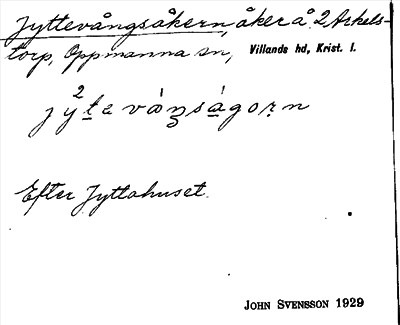 Jyttevångsåkern, åker å 2 Askels-
torp, Oppmanna sn, Villands hd, Krist. l.
Efter Jyttahuset.
JOHN SVENSSON 1929